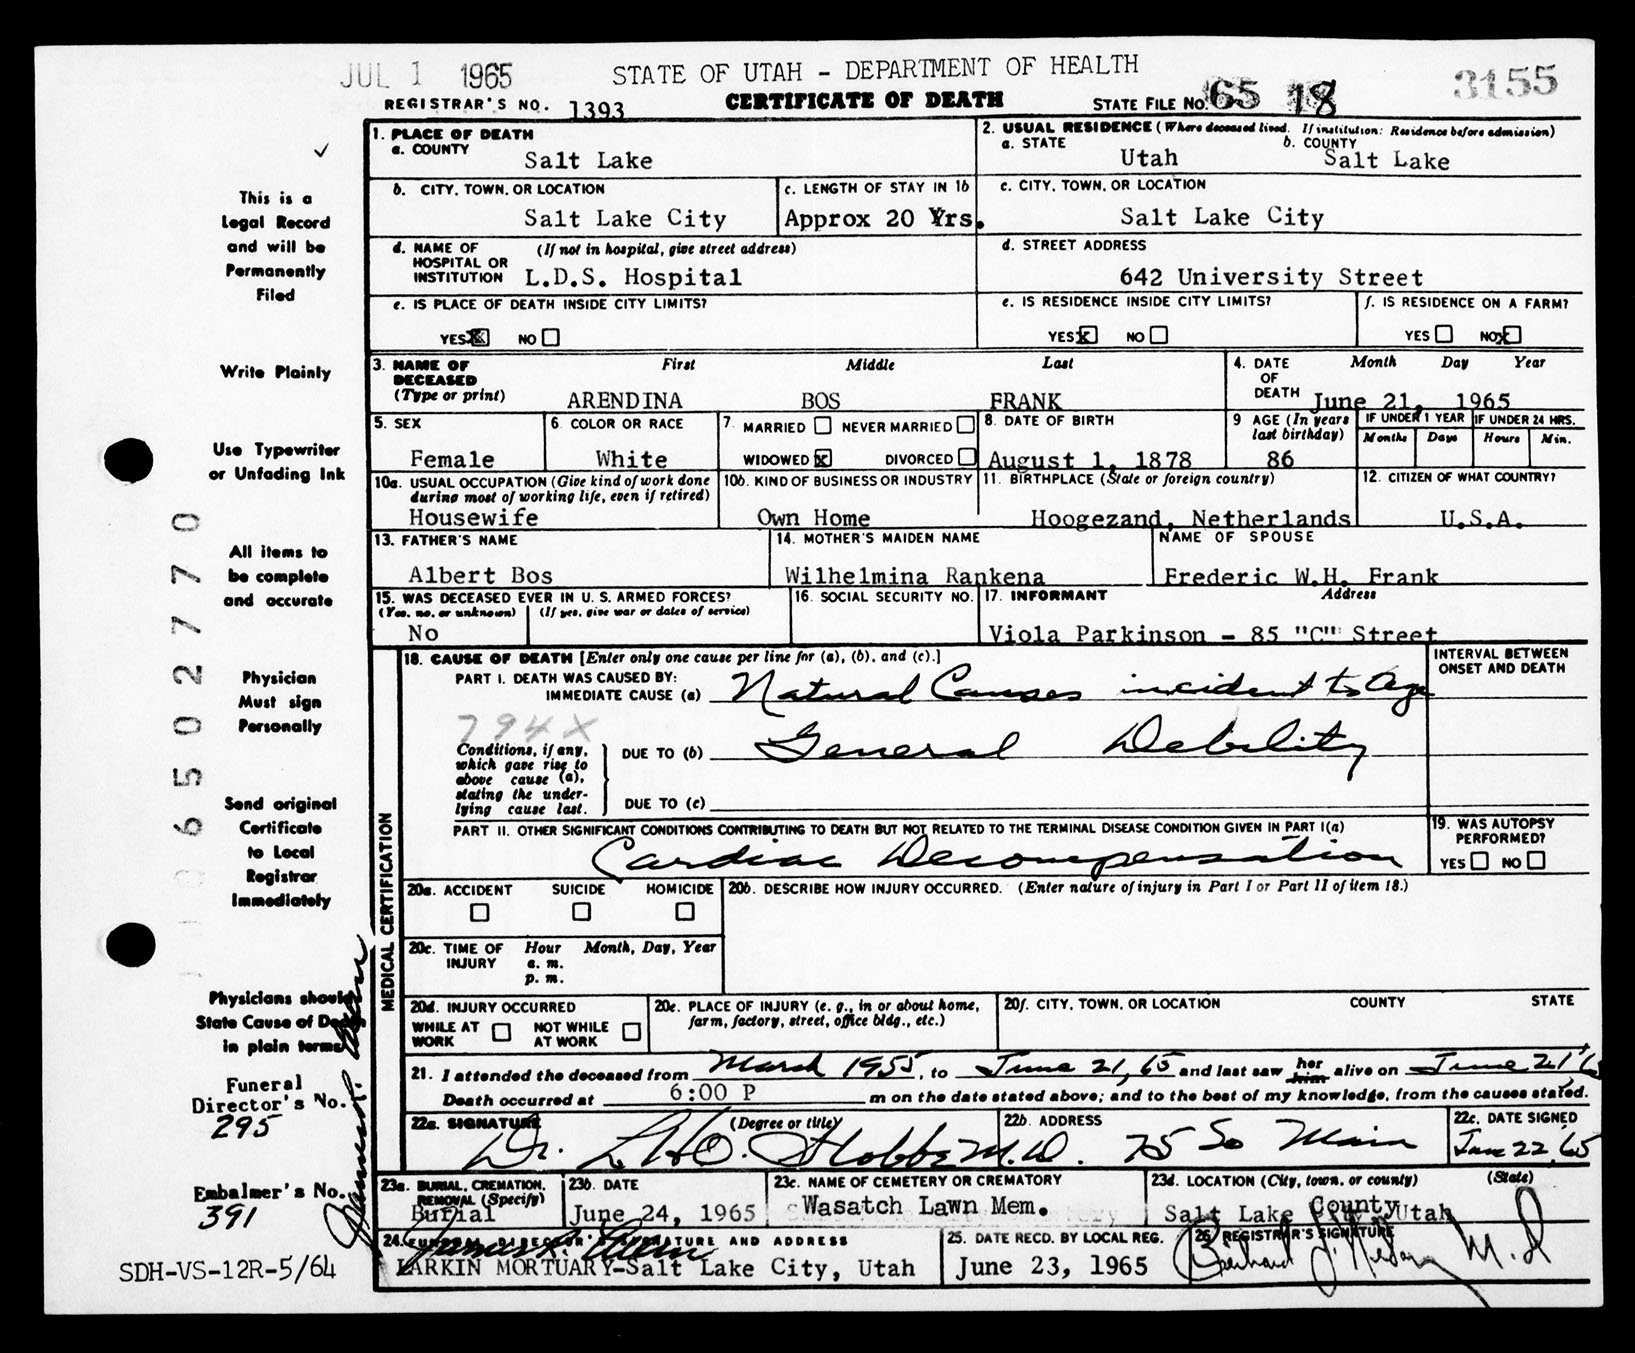 JUL 1 1965
STATE OF UTAH - DEPARTMENT OF HEALTH
3155
REGISTRAR'S NO. 1393
CERTIFICATE OF DEATH
STATE FILE NO. 65 18
1. PLACE OF DEATH
a. COUNTY
Salt Lake
2. USUAL RESIDENCE (Where deceased lived. If institution: Residence before admission)
a. STATE b. COUNTY
Utah Salt Lake
b. CITY, TOWN, OR LOCATION
Salt Lake City
c. LENGTH OF STAY IN 1b
Approx 20 Yrs.
c. CITY, TOWN, OR LOCATION
Salt Lake City
d. NAME OF HOSPITAL OR INSTITUTION (If not in hospital, give street address)
L.D.S. Hospital
d. STREET ADDRESS
642 University Street
e. IS PLACE OF DEATH INSIDE CITY LIMITS?
YES X NO
e. IS RESIDENCE INSIDE CITY LIMITS?
YES X NO
f. IS RESIDENCE ON A FARM?
YES NO X
3. NAME OF DECEASED (Type or print)
First Middle Last
ARENDINA BOS FRANK
4. DATE OF DEATH Month Day Year
June 21, 1965
5. SEX
Female
6. COLOR OR RACE
White
7. MARRIED NEVER MARRIED
WIDOWED X DIVORCED
8. DATE OF BIRTH
August 1, 1878
9 AGE (In years last birthday)
86
IF UNDER 1 YEAR IF UNDER 24 HRS.
Months Days Hours Min.
10a. USUAL OCCUPATION (Give kind of work done during most of working life, even if retired)
Housewife
10b. KIND OF BUSINESS OR INDUSTRY
Own Home
11. BIRTHPLACE (State or foreign country)
Hoogezand, Netherlands
12. CITIZEN OF WHAT COUNTRY?
U.S.A.
13. FATHER'S NAME
Albert Bos
14. MOTHER'S MAIDEN NAME
Wilhelmina Rankena
NAME OF SPOUSE
Frederic W.H. Frank
15. WAS DECEASED EVER IN U. S. ARMED FORCES?
(Yes, no, or unknown) (If yes, give war or dates of service)
No
16. SOCIAL SECURITY NO.
17. INFORMANT Address
Viola Parkinson - 85 "C" Street
MEDICAL CERTIFICATION
18. CAUSE OF DEATH [Enter only one cause per line for (a), (b), and (c).]
INTERVAL BETWEEN ONSET AND DEATH
PART I. DEATH WAS CAUSED BY:
IMMEDIATE CAUSE (a) Natural Causes incident to Age
794X
Conditions, if any, which gave rise to above cause (a), stating the underlying cause last.
DUE TO (b) General Debility
DUE TO (c)
PART II. OTHER SIGNIFICANT CONDITIONS CONTRIBUTING TO DEATH BUT NOT RELATED TO THE TERMINAL DISEASE CONDITION GIVEN IN PART I(a)
Cardiac Decompensation
19. WAS AUTOPSY PERFORMED?
YES NO
20a. ACCIDENT SUICIDE HOMICIDE
20b. DESCRIBE HOW INJURY OCCURRED. (Enter nature of injury in Part I or Part II of item 18.)
20c. TIME OF INJURY Hour Month, Day, Year
a. m.
p. m.
20d. INJURY OCCURRED
WHILE AT WORK NOT WHILE AT WORK
20e. PLACE OF INJURY (e. g., in or about home, farm, factory, street, office bldg., etc.)
20f. CITY, TOWN, OR LOCATION COUNTY STATE
21. I attended the deceased from March 1955, to June 21, 65 and last saw her him alive on June 21, 65
Death occurred at 6:00 P m on the date stated above; and to the best of my knowledge, from the causes stated.
22a. SIGNATURE (Degree or title)
Dr. L.H.O. Stobbe M.D.
22b. ADDRESS
75 So Main
22c. DATE SIGNED
June 22, 65
23a. BURIAL, CREMATION, REMOVAL (Specify)
Burial
23b. DATE
June 24, 1965
23c. NAME OF CEMETERY OR CREMATORY
Wasatch Lawn Mem.
23d. LOCATION (City, town, or county) (State)
Salt Lake County Utah
24. FUNERAL DIRECTOR'S SIGNATURE AND ADDRESS
LARKIN MORTUARY-Salt Lake City, Utah
25. DATE RECD. BY LOCAL REG.
June 23, 1965
26 REGISTRAR'S SIGNATURE
M.D
This is a
Legal Record
and will be
Permanently
Filed
Write Plainly
Use Typewriter
or Unfading Ink
All items to
be complete
and accurate
Physician
Must sign
Personally
Send original
Certificate
to Local
Registrar
Immediately
Physicians should
State Cause of Death
in plain terms
Funeral
Director's No.
295
Embalmer's No.
391
SDH-VS-12R-5/64
6502770